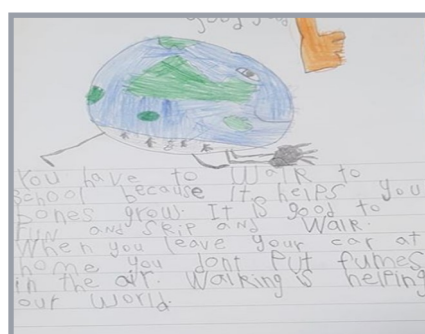 You have to Walk to
School because it helps you
bones grow. It is good to
run and Skip and Walk.
When you leave your car at
home you dont Put fumes
in the air. Walking is helping
our world.